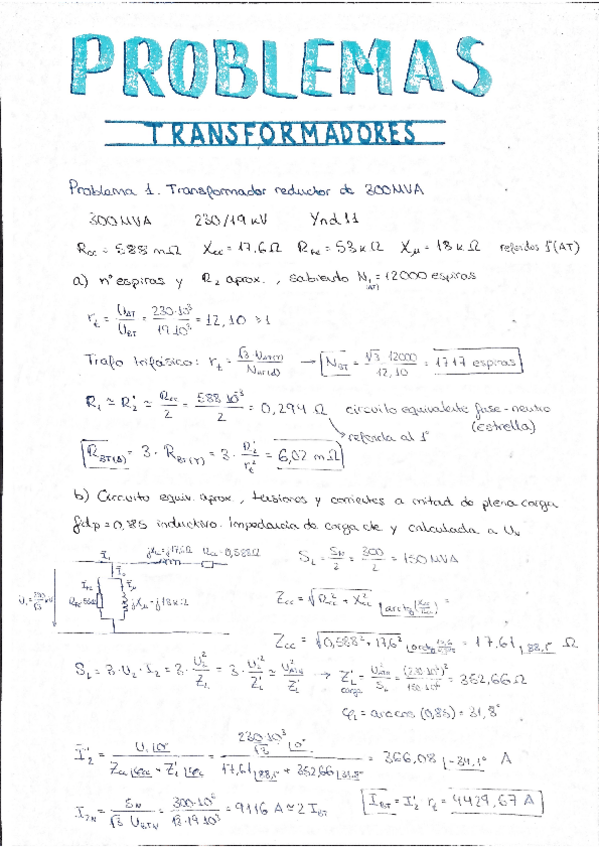 PROBLEMAS
TRANSFORMADORES
Problema 1. Transformador reductor de 300MVA
300MVA 230/19 kV Ynd11
Rcc = 588 mΩ Xcc = 17.6Ω RFe = 53kΩ Xμ = 18kΩ referidos 1º(AT)
a) nº espiras y R2 aprox., sabiendo N1 = 12000 espiras
(AT)
rt = UAT/UBT = 230·10³/19·10³ = 12,10 >1
Trafo trifásico: rt = √3 NAT(Y)/NBT(d) → NBT = √3 12000/12,10 = 1717 espiras
R1 ≃ R2' ≃ Rcc/2 = 588·10⁻³/2 = 0,294 Ω circuito equivalente fase-neutro
(estrella)
referida al 1º
RBT(Δ) = 3 · RBT(Y) = 3 · R2'/rt² = 6,02 mΩ
b) Circuito equiv. aprox, tensiones y corrientes a mitad de plena carga
fdp = 0,85 inductivo. Impedancia de carga cte y calculada a UN
SL = SN/2 = 300/2 = 150 MVA
Zcc = √Rcc² + Xcc² arctg(Xcc/Rcc) =
Zcc = √0,588² + 17,6² = 17.61 88,1° Ω
SL = 3·U2·I2 = 3·U2²/ZL = 3·U2'²/ZL' ≃ U1N²/ZL' → ZL' = U1N²/SL = (230·10³)²/150·10⁶ = 352,66 Ω
carga
φL = arccos (0,85) = 31,8°
I2' = U1 0°/(Zcc φcc + ZL' φL) = 230·10³/√3 0°/(17,61 88,1° + 352,66 31,8°) = 366,08 -34,1° A
I2N = SN/√3 UBTN = 300·10⁶/√3·19·10³ = 9116 A ≃ 2 IBT IBT = I2' rt = 4429,67 A